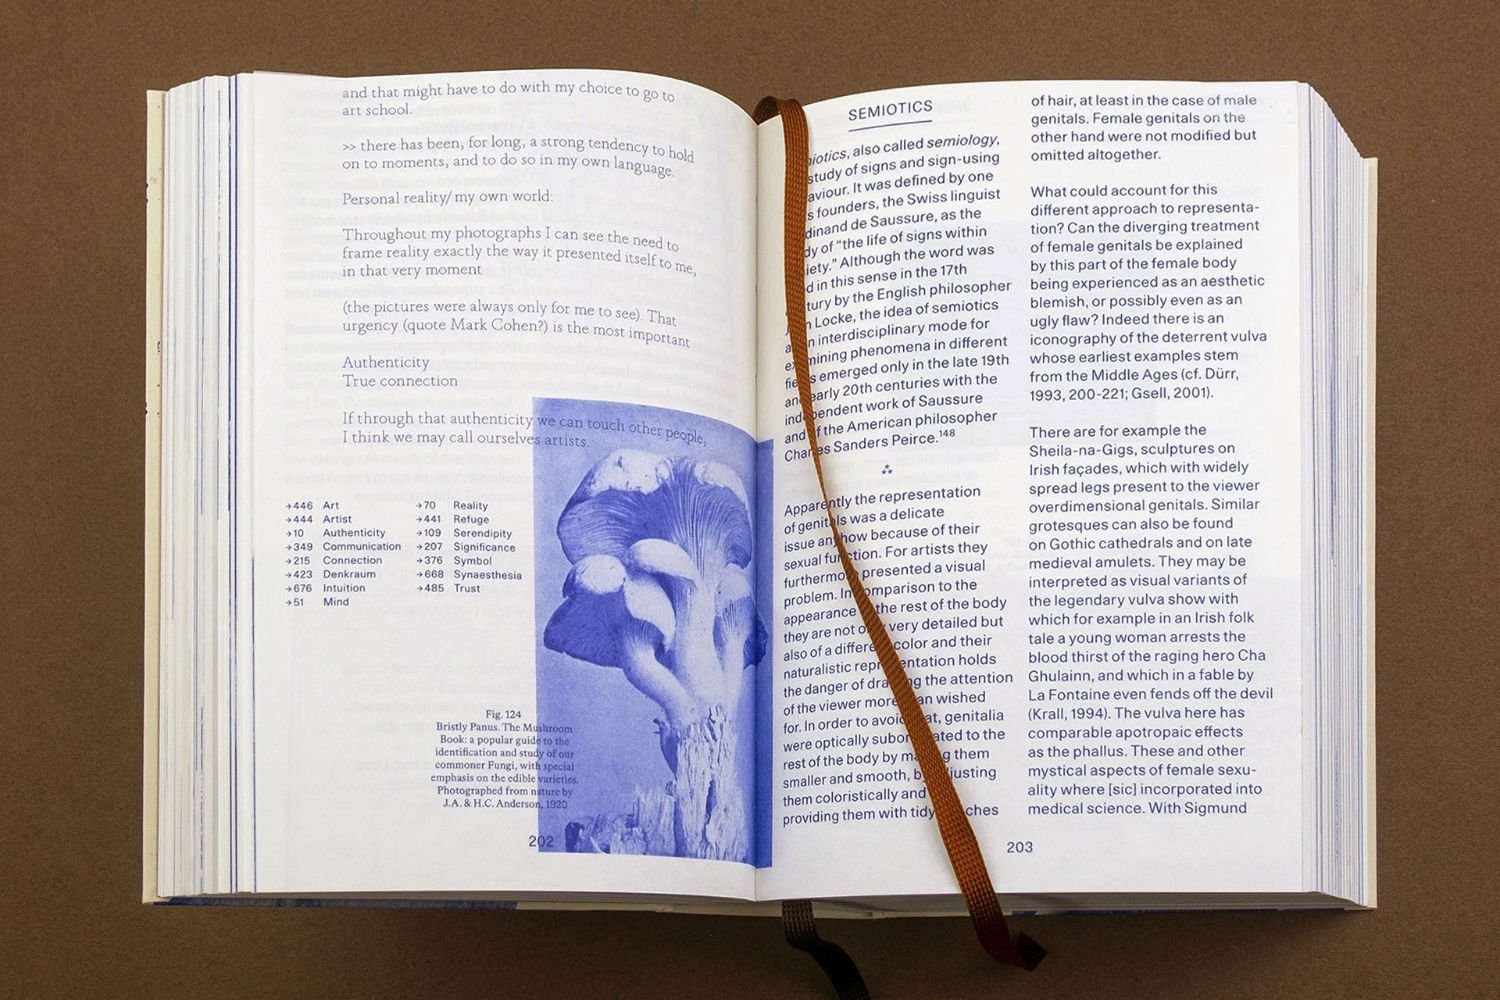 and that might have to do with my choice to go to
art school.
>> there has been, for long, a strong tendency to hold
on to moments, and to do so in my own language.
Personal reality/ my own world:
Throughout my photographs I can see the need to
frame reality exactly the way it presented itself to me,
in that very moment
(the pictures were always only for me to see). That
urgency (quote Mark Cohen?) is the most important
Authenticity
True connection
If through that authenticity we can touch other people,
I think we may call ourselves artists.
→446 Art
→444 Artist
→10 Authenticity
→349 Communication
→215 Connection
→423 Denkraum
→676 Intuition
→51 Mind
→70 Reality
→441 Refuge
→109 Serendipity
→207 Significance
→376 Symbol
→668 Synaesthesia
→485 Trust
Fig. 124
Bristly Panus. The Mushroom
Book: a popular guide to the
identification and study of our
commoner Fungi, with special
emphasis on the edible varieties.
Photographed from nature by
J.A. & H.C. Anderson, 1920
202
SEMIOTICS
iotics, also called semiology,
study of signs and sign-using
aviour. It was defined by one
s founders, the Swiss linguist
dinand de Saussure, as the
dy of “the life of signs within
iety.” Although the word was
d in this sense in the 17th
tury by the English philosopher
n Locke, the idea of semiotics
a n interdisciplinary mode for
ex mining phenomena in different
fie s emerged only in the late 19th
an early 20th centuries with the
ind pendent work of Saussure
and f the American philosopher
Cha es Sanders Peirce.148
⁂
Apparently the representation
of genitals was a delicate
issue anyhow because of their
sexual function. For artists they
furthermore presented a visual
problem. In comparison to the
appearance the rest of the body
they are not only very detailed but
also of a different color and their
naturalistic representation holds
the danger of drawing the attention
of the viewer more than wished
for. In order to avoid that, genitalia
were optically subordinated to the
rest of the body by making them
smaller and smooth, by adjusting
them coloristically and
providing them with tidy ches
of hair, at least in the case of male
genitals. Female genitals on the
other hand were not modified but
omitted altogether.
What could account for this
different approach to representa-
tion? Can the diverging treatment
of female genitals be explained
by this part of the female body
being experienced as an aesthetic
blemish, or possibly even as an
ugly flaw? Indeed there is an
iconography of the deterrent vulva
whose earliest examples stem
from the Middle Ages (cf. Dürr,
1993, 200-221; Gsell, 2001).
There are for example the
Sheila-na-Gigs, sculptures on
Irish façades, which with widely
spread legs present to the viewer
overdimensional genitals. Similar
grotesques can also be found
on Gothic cathedrals and on late
medieval amulets. They may be
interpreted as visual variants of
the legendary vulva show with
which for example in an Irish folk
tale a young woman arrests the
blood thirst of the raging hero Cha
Ghulainn, and which in a fable by
La Fontaine even fends off the devil
(Krall, 1994). The vulva here has
comparable apotropaic effects
as the phallus. These and other
mystical aspects of female sexu-
ality where [sic] incorporated into
medical science. With Sigmund
203